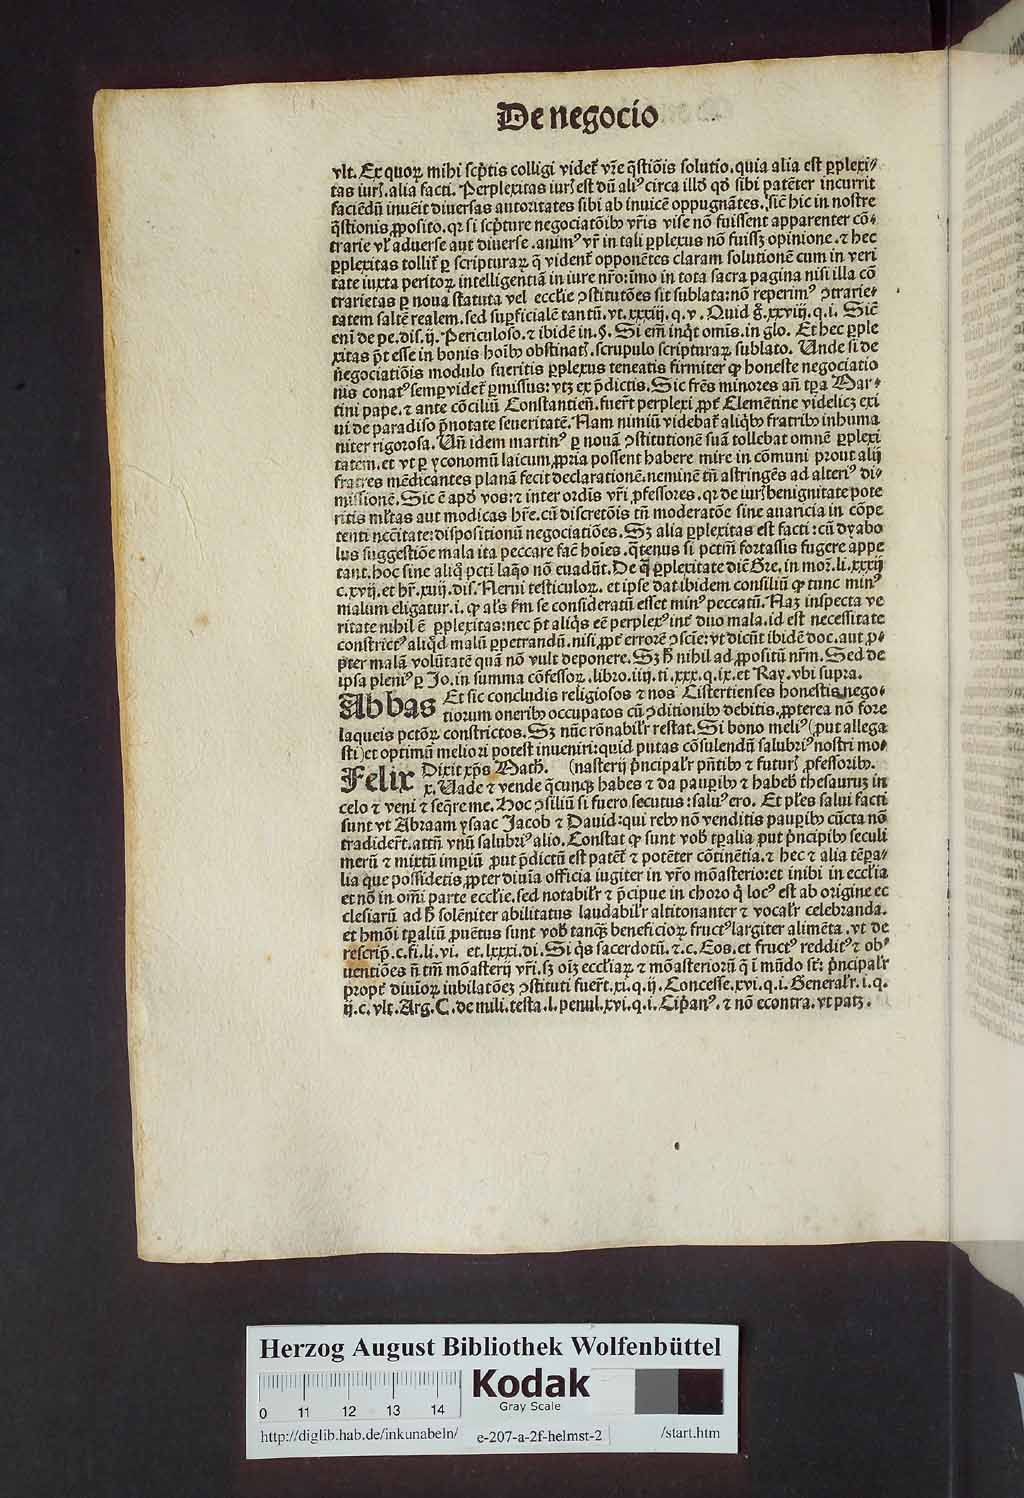 De negocio
vlt. Ex quoꝝ mihi scp̄tis colligi videt᷑ vr̄e q̄stiōis solutio. quia alia est ꝑplexi⸗
tas iur͛. alia facti. Perplexitas iur͛ est dū aliꝰ circa illd̓ qd̓ sibi patēter incurrit
faciēdū inuēit diuersas autoritates sibi ab inuicē oppugnātes. sic̄ hic in nostre
q̄stionis ꝓposito. qꝛ si scp̄ture negociatōibꝰ vr̄is vise nō fuissent apparenter cō⸗
trarie vl̓ aduerse aut diuerse. animꝰ vr̄ in tali ꝑplexus nō fuissꝫ opinione. ⁊ hec
ꝑplexitas tollit᷑ ꝑ scripturaꝝ q̄ vident᷑ opponētes claram solutionē cum in veri
tate iuxta peritoꝝ intelligentiā in iure nr̄o: īmo in tota sacra pagina nisi illa cō
trarietas ꝑ noua statuta vel eccl̓ie ꝯstitutōes sit sublata: nō reperimꝰ ꝯtrarie⸗
tatem saltē realem. sed suꝑficialē tantū. vt. xxxiij. q. v. Quid g̊. xxviij. q. i. Sic̄
eni de pe. dis. ij. Periculose. ⁊ ibidē in. §. Si em̄ inq̇t omis. in glo. Et hec ꝑple
xitas p̄t esse in bonis hoībꝰ obstinat͛. scrupulo scripturaꝝ sublato. Unde si de
negociatiōis modulo fueritis ꝑplexus teneatis firmiter ꝙ honeste negociatio
nis conatꝰ semꝑ videt᷑ ꝑmissus: vtꝫ ex p̄dictis. Sic frēs minores an̄ tꝑa Mar⸗
tini pape. ⁊ ante cōciliū Constantien̄. fuer̄t perplexi ꝓpt᷑ Clemētine videlicꝫ exi
ui de paradiso p̄notate seueritatē. Nam nimiū videbat᷑ aliq̇bꝰ fratribꝰ inhuma
niter rigorosa. Un̄ idem martinꝰ ꝑ nouā ꝯstitutionē suā tollebat omnē ꝑplexi
tatem. et vt ꝑ yconomū laicum, ꝓpria possent habere mire in cōmuni prout alij
fratres mēdicantes planā fecit declarationē. neminē tn̄ astringēs ad alteriꝰ di⸗
missionē. Sic ē apd̓ vos: ⁊ inter ordīs vr̄i ꝓfessores. qꝛ de iur͛ benignitate pote
ritis ml̓tas aut modicas hr̄e. cū discretōis tn̄ moderatōe sine auaricia in cōpe
tenti nēcitate: dispositionū negociatiōes. Sꝫ alia ꝑplexitas est facti: cū dyabo
lus suggestiōe mala ita peccare fac̄ hoies. q̄tenus si pctm̄ fortassis fugere appe
tant. hoc sine aliq̊ pcti laq̊o nō euadūt. De q̄ ꝑplexitate dic̄ Gr̄e. in mor̄. li. xxxij
c. xvij. et hr̄. xiij. dis. Nerui testiculoꝝ. et ipse dat ibidem consiliū ꝙ tunc minꝰ
malum eligatur. i. ꝙ al̓s scd̓m se consideratū esset minꝰ peccatū. Naꝫ inspecta ve
ritate nihil ē ꝑplexitas: nec p̄t aliq̇s eē perplexꝰ int᷑ duo mala. id est necessitate
constrictꝰ aliq̇d malū ꝑpetrandū. nisi ꝓpt᷑ errorē ꝯscīe: vt dicūt ibidē doc. aut ꝓ⸗
pter malā volūtatē quā nō vult deponere. Sꝫ h̓ nihil ad ꝓpositū nr̄m. Sed de
ipsa pleniꝰ ꝑ Jo. in summa cōfessoꝝ. libro. iiij. ti. xxx. q. ix. et Ray. vbi supra.
Abbas Et sic concludis religiosos ⁊ nos Cistertienses honestis nego⸗
tiorum oneribꝰ occupatos cū ꝯditionibꝰ debitis, ꝓpterea nō fore
laqueis pctōꝝ constrictos. Sꝫ nūc rōnabil̓r restat. Si bono meliꝰ (put allega
sti) et optimū meliori potest inueniri: quid putas cōsulendū salubriꝰ nostri mo⸗
Felix Dixit xp̄s Math. (nasterij p̄ncipal̓r p̄ntibꝰ ⁊ futur͛ ꝓfessoribꝰ.
x. Uade ⁊ vende q̄cunqꝫ habes ⁊ da pauꝑibꝰ ⁊ habeb̓ thesauruꝫ in
celo ⁊ veni ⁊ seq̄re me. Hoc ꝯsiliū si fuero secutus: saluꝰ ero. Et pl̓es salui facti
sunt vt Abraam ysaac Jacob ⁊ Dauid: qui rebꝰ nō venditis pauꝑibꝰ cūcta nō
tradider̄t. attn̄ vnū salubriꝰ alio. Constat ꝙ sunt vob̓ tꝑalia ꝓut p̄ncipibꝰ seculi
merū ⁊ mixtū impiū ꝓut p̄dictū est patēt᷑ ⁊ potēter cōtinētia. ⁊ hec ⁊ alia tēꝑa⸗
lia que possidetis, ꝓpter diuīa officia iugiter in vr̄o mōasterio: et inibi in eccl̓ia
et nō in om̄i parte eccl̓ie. sed notabil̓r ⁊ p̄cipue in choro q̇ locꝰ est ab origine ec
clesiarū ad h̓ solēniter abilitatus laudabil̓r altitonanter ⁊ vocal̓r celebranda.
et hm̄oi tꝑaliū ꝓuētus sunt vob̓ tanqꝫ beneficioꝝ fructꝰ largiter alimēta. vt de
rescrip̄. c. fi. li. vi. et. lxxxi. di. Si q̇s sacerdotū. ⁊. c. Eos. et fructꝰ redditꝰ ⁊ ob⸗
uentiōes n̄ tm̄ mōasterij vr̄i. sꝫ oīꝫ eccl̓iaꝝ ⁊ mōasteriorū q̄ ī mūdo st̄: p̄ncipal̓r
propt᷑ diuīoꝝ iubilatōeꝫ ꝯstituti fuer̄t. xi. q. ij. Concesse. xvi. q. i. General̓r. i. q.
ij. c. vlt. Arg. C. de mili. testa. l. penul. xvi. q. i. Cip̄anꝰ. ⁊ nō econtra. vt patꝫ.
Herzog August Bibliothek Wolfenbüttel
0 11 12 13 14
Kodak
Gray Scale
http://diglib.hab.de/inkunabeln/ e-207-a-2f-helmst-2 /start.htm